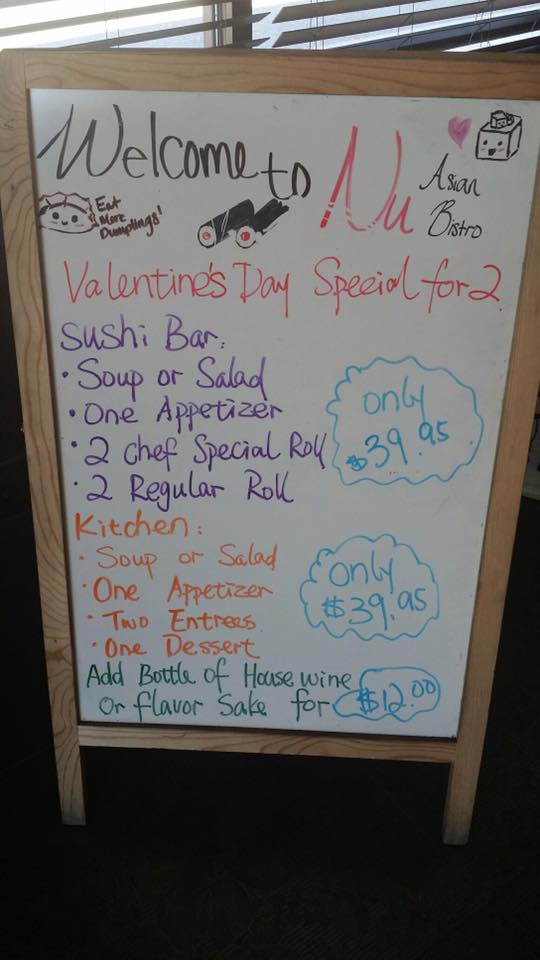 Welcome to Nu Asian Bistro
Eat More Dumplings!
Valentine's Day Special for 2
Sushi Bar:
• Soup or Salad
• One Appetizer
• 2 Chef Special Roll
• 2 Regular Roll
only
$39.95
Kitchen:
• Soup or Salad
• One Appetizer
• Two Entrees
• One Dessert
only
$39.95
Add Bottle of House wine
Or flavor Sake for $12.00